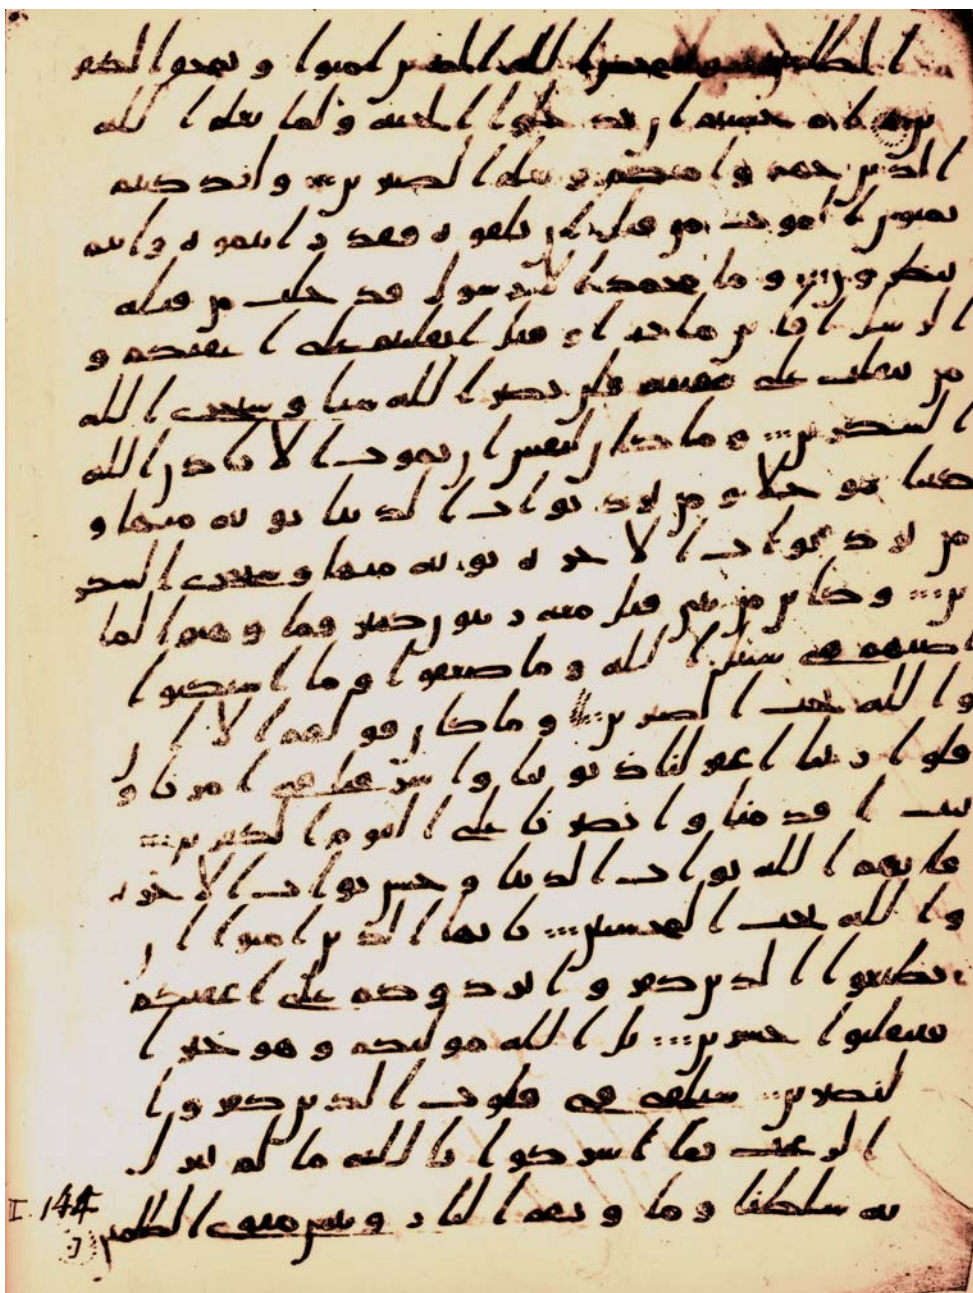 الظلمين وليمحص الله الذين امنوا ويمحق الكفر
ين ام حسبتم ان تدخلوا الجنة ولما يعلم الله
الذين جهدوا منكم ويعلم الصبرين ولقد كنتم
تمنون الموت من قبل ان تلقوه فقد رايتموه وانتم
تنظرون وما محمد الا رسول قد خلت من قبله
الرسل افاين مات او قتل انقلبتم على اعقبكم و
من ينقلب على عقبيه فلن يضر الله شيا وسيجزى الله
الشكرين وما كان لنفس ان تموت الا باذن الله
كتبا موجلا ومن يرد ثواب الدنيا نوته منها و
من يرد ثواب الاخرة نوته منها وسنجزى الشكر
ين وكاين من نبى قتل معه ربيون كثير فما وهنوا لما
اصبهم فى سبيل الله وما ضعفوا وما استكنوا
والله يحب الصبرين وما كان قولهم الا ان
قالوا ربنا اغفر لنا ذنوبنا واسرفنا فى امرنا و
ثبت اقدمنا وانصرنا على القوم الكفرين
فاتيهم الله ثواب الدنيا وحسن ثواب الاخرة
والله يحب المحسنين يايها الذين امنوا ان
تطيعوا الذين كفروا يردوكم على اعقبكم
فتنقلبوا خسرين بل الله موليكم وهو خير ا
لنصرين سنلقى فى قلوب الذين كفروا
الرعب بما اشركوا بالله ما لم ينزل
به سلطنا وماويهم النار وبيس مثوى الظلمين
I. 144